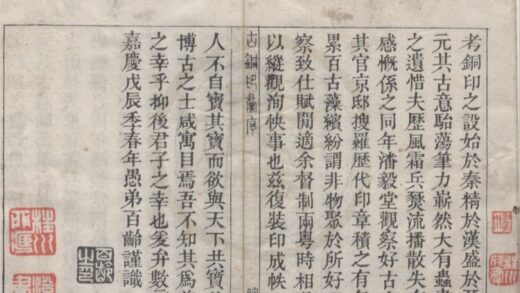 考銅印之設始於秦精於漢盛於
元其古意駘蕩筆力嶄然大有蟲
之遺惜夫歷風霜兵燹流播散失
感慨係之同年潘毅堂觀察好古
其官京邸搜羅歷代印章積之有
累百古藻繽紛謂非物聚於所好
察致仕賦閒適余督制兩粵時相
以縱觀洵快事也茲復裝印成帙
古銅印彙序
人不自寶其寶而欲與天下共寶
博古之士咸寓目焉吾不知其爲
之幸乎抑後君子之幸也爰弁數
嘉慶戊辰季春年愚弟百齡謹識
百齡